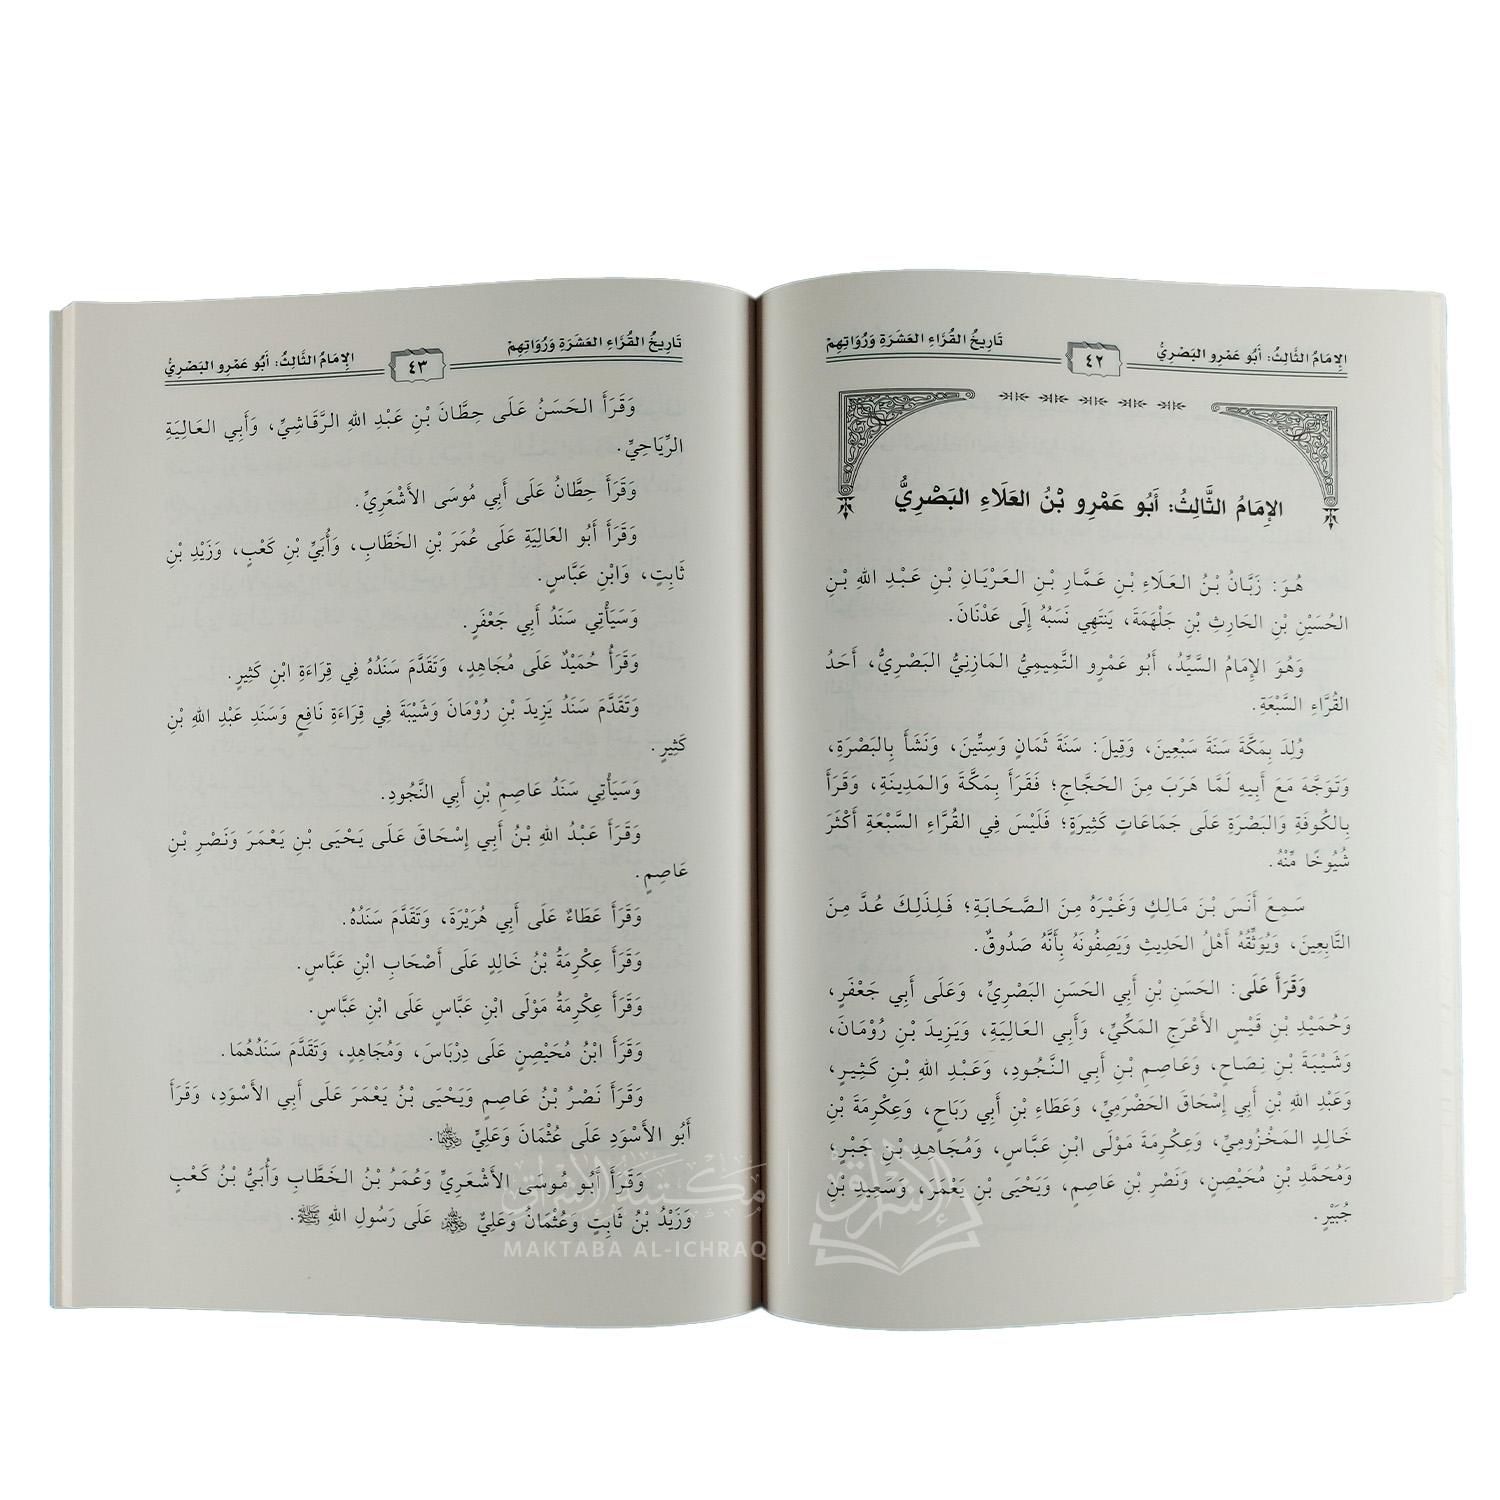 الإِمَامُ الثَّالِثُ: أَبُو عَمْرٍو البَصْرِيُّ
٤٢
تَارِيخُ القُرَّاءِ العَشَرَةِ وَرُوَاتِهِمْ
الإِمَامُ الثَّالِثُ: أَبُو عَمْرِو بْنُ العَلَاءِ البَصْرِيُّ
هُوَ: زَبَّانُ بْنُ العَلَاءِ بْنِ عَمَّارِ بْنِ العَرْيَانِ بْنِ عَبْدِ اللهِ بْنِ
الحُسَيْنِ بْنِ الحَارِثِ بْنِ جَلْهَمَةَ، يَنتَهِي نَسَبُهُ إِلَى عَدْنَانَ.
وَهُوَ الإِمَامُ السَّيِّدُ، أَبُو عَمْرٍو التَّمِيمِيُّ المَازِنِيُّ البَصْرِيُّ، أَحَدُ
القُرَّاءِ السَّبْعَةِ.
وُلِدَ بِمَكَّةَ سَنَةَ سَبْعِينَ، وَقِيلَ: سَنَةَ ثَمَانٍ وَسِتِّينَ، وَنَشَأَ بِالبَصْرَةِ،
وَتَوَجَّهَ مَعَ أَبِيهِ لَمَّا هَرَبَ مِنَ الحَجَّاجِ؛ فَقَرَأَ بِمَكَّةَ وَالمَدِينَةِ، وَقَرَأَ
بِالكُوفَةِ وَالبَصْرَةِ عَلَى جَمَاعَاتٍ كَثِيرَةٍ؛ فَلَيْسَ فِي القُرَّاءِ السَّبْعَةِ أَكْثَرَ
شُيُوخًا مِّنْهُ.
سَمِعَ أَنَسَ بْنَ مَالِكٍ وَغَيْرَهُ مِنَ الصَّحَابَةِ؛ فَلِذَلِكَ عُدَّ مِنَ
التَّابِعِينَ، وَيُوَثِّقُهُ أَهْلُ الحَدِيثِ وَيَصِفُونَهُ بِأَنَّهُ صَدُوقٌ.
وَقَرَأَ عَلَى: الحَسَنِ بْنِ أَبِي الحَسَنِ البَصْرِيِّ، وَعَلَى أَبِي جَعْفَرٍ،
وَحُمَيْدِ بْنِ قَيْسٍ الأَعْرَجِ المَكِّيِّ، وَأَبِي العَالِيَةِ، وَيَزِيدَ بْنِ رُومَانَ،
وَشَيْبَةَ بْنِ نِصَاحٍ، وَعَاصِمِ بْنِ أَبِي النَّجُودِ، وَعَبْدِ اللهِ بْنِ كَثِيرٍ،
وَعَبْدِ اللهِ بْنِ أَبِي إِسْحَاقَ الحَضْرَمِيِّ، وَعَطَاءِ بْنِ أَبِي رَبَاحٍ، وَعِكْرِمَةَ بْنِ
خَالِدٍ المَخْزُومِيِّ، وَعِكْرِمَةَ مَوْلَى ابْنِ عَبَّاسٍ، وَمُجَاهِدِ بْنِ جَبْرٍ،
وَمُحَمَّدِ بْنِ مُحَيْصِنٍ، وَنَصْرِ بْنِ عَاصِمٍ، وَيَحْيَى بْنِ يَعْمَرَ، وَسَعِيدِ بْنِ
جُبَيْرٍ.
الإِمَامُ الثَّالِثُ: أَبُو عَمْرٍو البَصْرِيُّ
٤٣
تَارِيخُ القُرَّاءِ العَشَرَةِ وَرُوَاتِهِمْ
وَقَرَأَ الحَسَنُ عَلَى حِطَّانَ بْنِ عَبْدِ اللهِ الرَّقَاشِيِّ، وَأَبِي العَالِيَةِ
الرِّيَاحِيِّ.
وَقَرَأَ حِطَّانُ عَلَى أَبِي مُوسَى الأَشْعَرِيِّ.
وَقَرَأَ أَبُو العَالِيَةِ عَلَى عُمَرَ بْنِ الخَطَّابِ، وَأُبَيِّ بْنِ كَعْبٍ، وَزَيْدِ بْنِ
ثَابِتٍ، وَابْنِ عَبَّاسٍ.
وَسَيَأْتِي سَنَدُ أَبِي جَعْفَرٍ.
وَقَرَأُ حُمَيْدٌ عَلَى مُجَاهِدٍ، وَتَقَدَّمَ سَنَدُهُ فِي قِرَاءَةِ ابْنِ كَثِيرٍ.
وَتَقَدَّمَ سَنَدُ يَزِيدَ بْنِ رُومَانَ وَشَيْبَةَ فِي قِرَاءَةِ نَافِعٍ وَسَنَدِ عَبْدِ اللهِ بْنِ
كَثِيرٍ.
وَسَيَأْتِي سَنَدُ عَاصِمِ بْنِ أَبِي النَّجُودِ.
وَقَرَأَ عَبْدُ اللهِ بْنُ أَبِي إِسْحَاقَ عَلَى يَحْيَى بْنِ يَعْمَرَ وَنَصْرِ بْنِ
عَاصِمٍ.
وَقَرَأَ عَطَاءٌ عَلَى أَبِي هُرَيْرَةَ، وَتَقَدَّمَ سَنَدُهُ.
وَقَرَأَ عِكْرِمَةُ بْنُ خَالِدٍ عَلَى أَصْحَابِ ابْنِ عَبَّاسٍ.
وَقَرَأَ عِكْرِمَةُ مَوْلَى ابْنِ عَبَّاسٍ عَلَى ابْنِ عَبَّاسٍ.
وَقَرَأَ ابْنُ مُحَيْصِنٍ عَلَى دِرْبَاسٍ، وَمُجَاهِدٍ، وَتَقَدَّمَ سَنَدُهُمَا.
وَقَرَأَ نَصْرُ بْنُ عَاصِمٍ وَيَحْيَى بْنُ يَعْمَرَ عَلَى أَبِي الأَسْوَدِ، وَقَرَأَ
أَبُو الأَسْوَدِ عَلَى عُثْمَانَ وَعَلِيٍّ.
وَقَرَأَ أَبُو مُوسَى الأَشْعَرِيُّ وَعُمَرُ بْنُ الخَطَّابِ وَأُبَيُّ بْنُ كَعْبٍ
وَزَيْدُ بْنُ ثَابِتٍ وَعُثْمَانُ وَعَلِيٌّ عَلَى رَسُولِ اللهِ ﷺ.
مكتبة الإشراق
MAKTABA AL-ICHRAQ
الإشراق